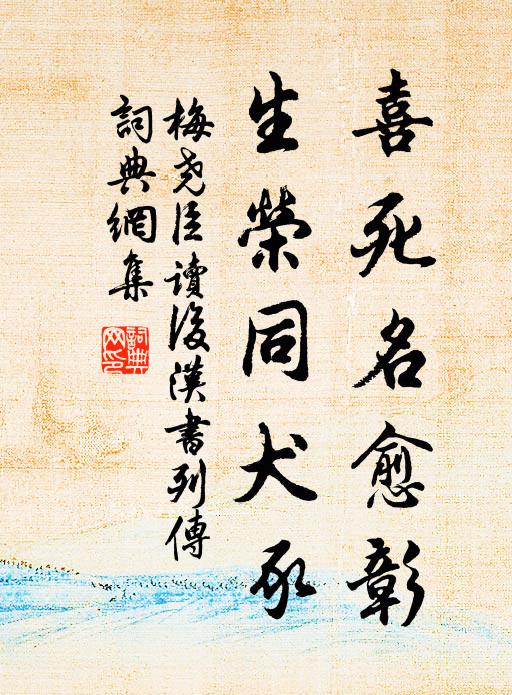 喜死名愈彰
生榮同犬豕
梅堯臣讀後漢書列傳
詞典網集
詞典网印